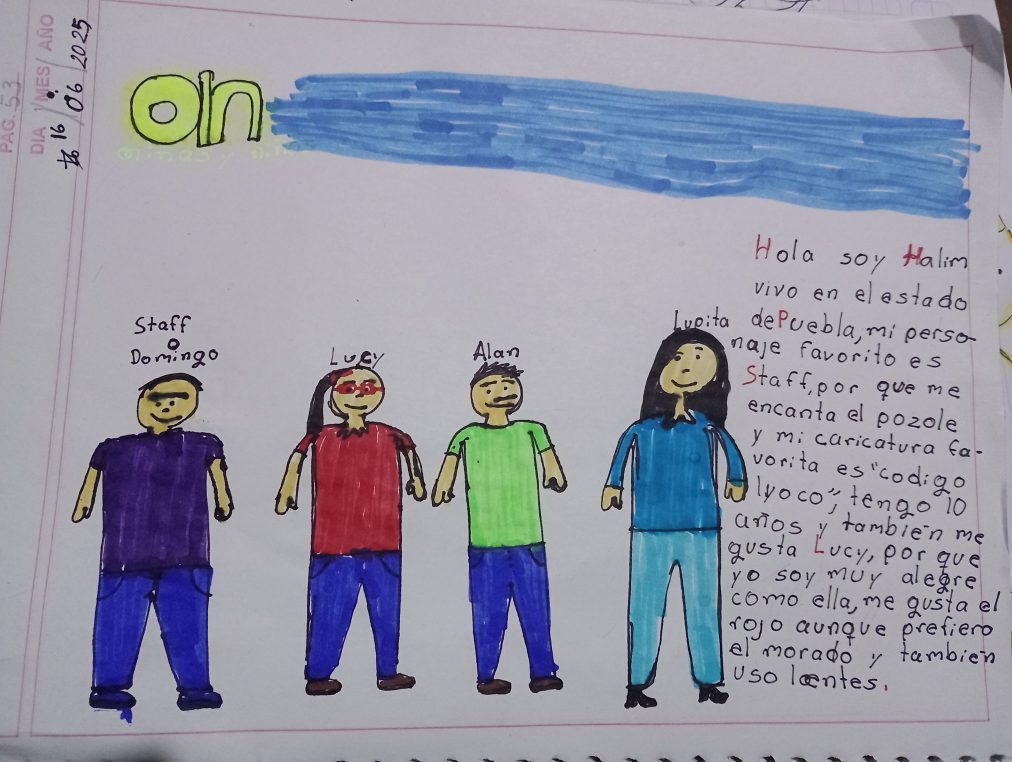 PAG. 53
DIA / MES / AÑO
16 / 06 / 2025
on
Staff
o
Domingo
Lucy
Alan
Lupita
Hola soy Halim
vivo en el estado
de Puebla, mi perso-
naje favorito es
Staff, por que me
encanta el pozole
y mi caricatura fa-
vorita es "codigo
lyoco", tengo 10
años y tambien me
gusta Lucy, por que
yo soy muy alegre
como ella, me gusta el
rojo aunque prefiero
el morado y tambien
uso lentes.